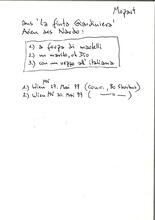 Mozart
aus 'La finta Giardiniera'
Arien des Nardo:
1) a forza di martelli
2) un marito, oh Dio
3) con un vezzo all'italiana
1) Wien 27. Mai 99
2) Wien 30. Mai 99